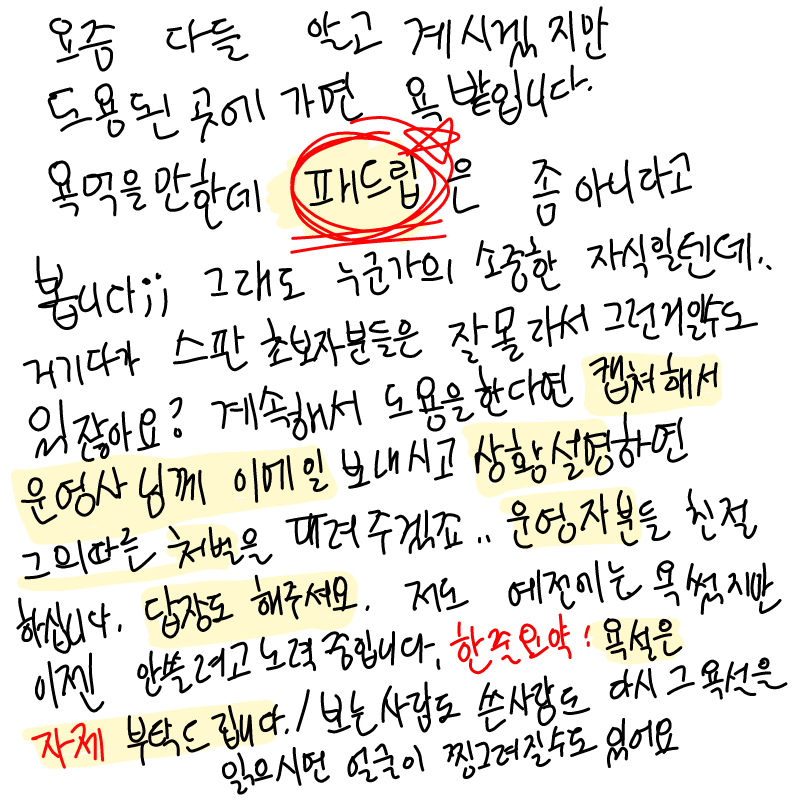 요즘 다들 알고 계시겠지만
도용된 곳에 가면 욕 밭입니다.
욕먹을만한데 패드립은 좀 아니라고
봅니다;; 그래도 누군가의 소중한 자식일텐데..
거기다가 스판 초보자분들은 잘몰라서 그런거일수도
있잖아요? 계속해서 도용을한다면 캡쳐해서
운영사님께 이메일 보내시고 상황설명하면
그의따른 처벌을 내려주겠죠.. 운영자분들 친절
하십니다. 답장도 해주셔요. 저도 예전에는 욕썼지만
이젠 안쓸려고노력중입니다. 한줄요약! 욕설은
자제 부탁드립니다./보는사람도 쓴사람도 다시그욕설을
읽으시면 얼굴이 찡그려질수도 있어요